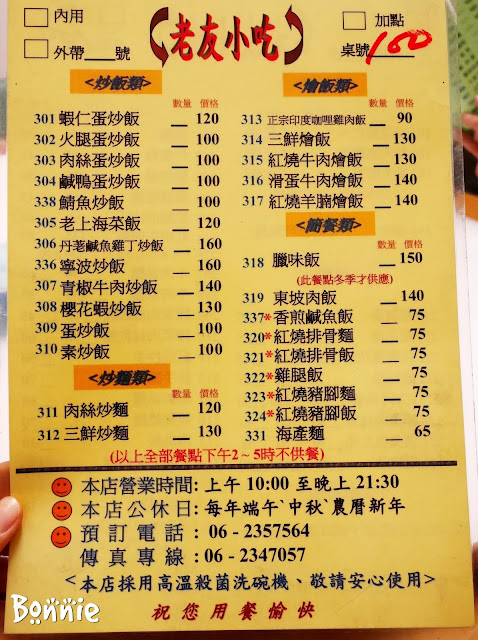 內用
外帶 號
老友小吃
加點
桌號 160
<炒飯類>
數量 價格
301 蝦仁蛋炒飯 120
302 火腿蛋炒飯 100
303 肉絲蛋炒飯 100
304 鹹鴨蛋炒飯 100
338 鯖魚炒飯 100
305 老上海菜飯 120
306 丹荖鹹魚雞丁炒飯 160
336 寧波炒飯 160
307 青椒牛肉炒飯 140
308 櫻花蝦炒飯 130
309 蛋炒飯 100
310 素炒飯 100
<炒麵類>
數量 價格
311 肉絲炒麵 120
312 三鮮炒麵 130
<燴飯類>
數量 價格
313 正宗印度咖哩雞肉飯 90
314 三鮮燴飯 130
315 紅燒牛肉燴飯 130
316 滑蛋牛肉燴飯 140
317 紅燒羊腩燴飯 140
<簡餐類>
數量 價格
318 臘味飯 150
(此餐點冬季才供應)
319 東坡肉飯 140
337*香煎鹹魚飯 75
320*紅燒排骨麵 75
321*紅燒排骨飯 75
322*雞腿飯 75
323*紅燒豬腳麵 75
324*紅燒豬腳飯 75
331 海產麵 65
(以上全部餐點下午2~5時不供餐)
本店營業時間: 上午 10:00 至晚上 21:30
本店公休日: 每年端午`中秋`農曆新年
預訂電話 : 06 - 2357564
傳真專線 : 06 - 2347057
<本店採用高溫殺菌洗碗機、敬請安心使用>
祝您用餐愉快
Bonnie